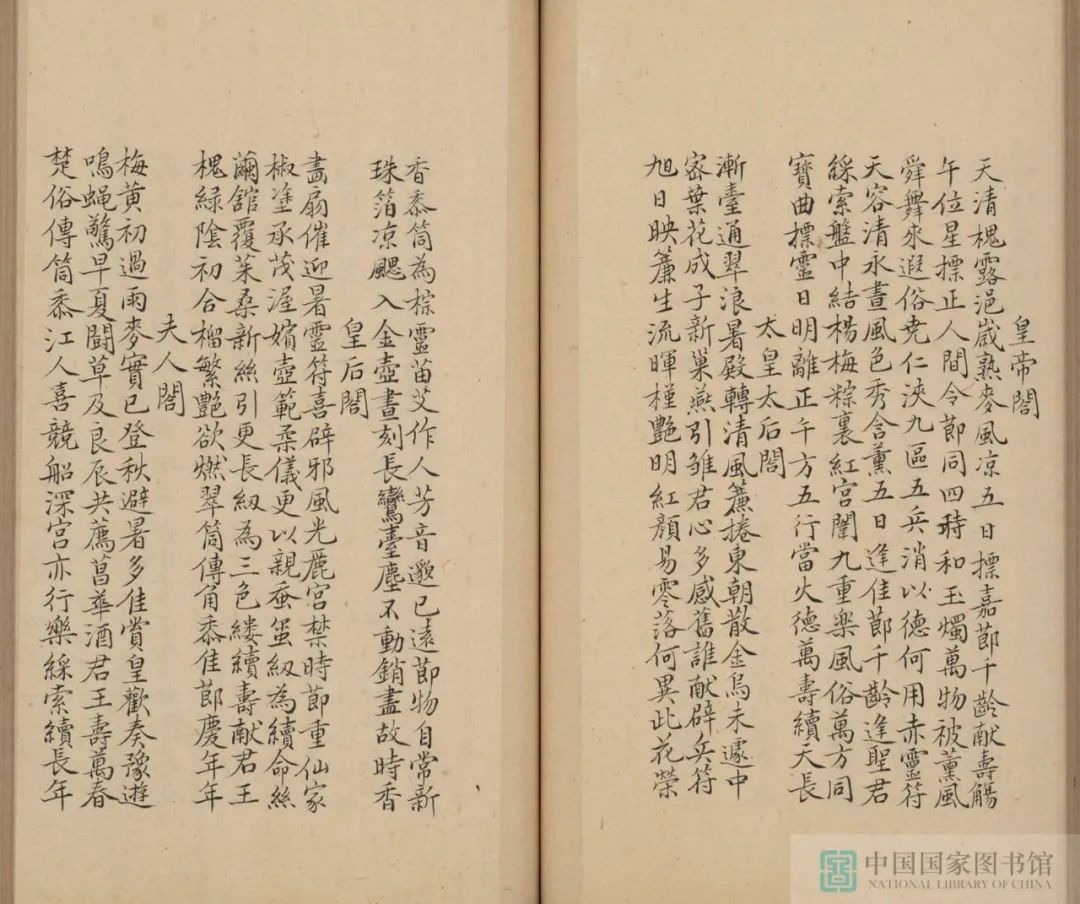 皇帝閣
天清槐露浥歲熟麥風凉五日標嘉節千齡献壽觴
午位星標正人間令節同四時和玉燭萬物被薰風
舜舞來遐俗堯仁浹九區五兵消以德何用赤靈符
天容清永晝風色秀含薰五日逢佳節千齡逢聖君
綵索盤中結楊梅粽裏紅宮闈九重樂風俗萬方同
寶曲標靈日明離正午方五行當火德萬壽續天長
太皇太后閣
漸臺通翠浪暑殿轉清風簾捲東朝散金烏未遽中
密葉花成子新巢燕引雏君心多感舊誰献辟兵符
旭日映簾生流暉槿艷明紅顏易零落何異此花榮
香黍筒為粽靈苗艾作人芳音邈已遠節物自常新
珠箔凉颸入金壺晝刻長鸞臺塵不動銷盡故時香
皇后閣
畵扇催迎暑靈符喜辟邪風光麗宮禁時節重仙家
椒塗承茂渥嬪壺範柔儀更以親蚕蠒紉為續命絲
繭舘覆茱桑新絲引更長紉為三色縷續壽献君王
槐綠陰初合榴繁艷欲燃翠筒傳角黍佳節慶年年
夫人閣
梅黃初過雨麥實已登秋避暑多佳賞皇歡奏豫遊
鳴蝇驚早夏鬪草及良辰共薦菖華酒君王壽萬春
楚俗傳筒黍江人喜競船深宮亦行樂綵索續長年
中国国家图书馆
NATIONAL LIBRARY OF CHINA